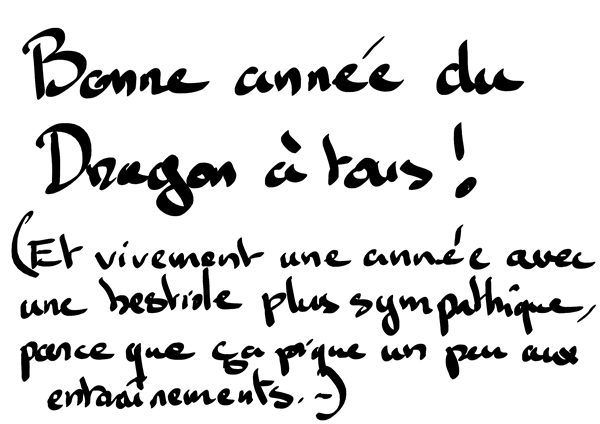 Bonne année du
Dragon à tous !
(Et vivement une année avec
une bestiole plus sympathique,
parce que ça pique un peu aux
entraînements. ~)